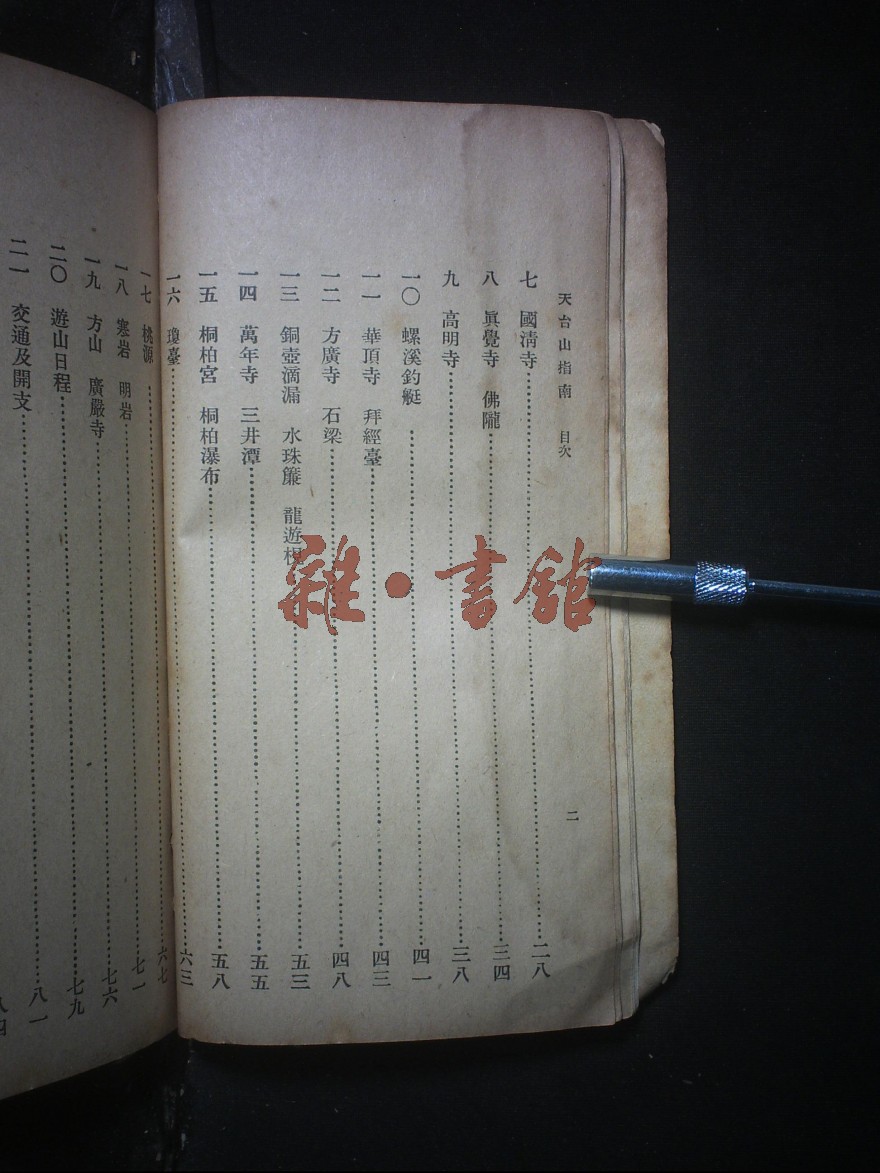 天台山指南 目次 二
七 國淸寺……二八
八 眞覺寺 佛隴……三四
九 高明寺……三八
一〇 螺溪釣艇……四一
一一 華頂寺 拜經臺……四三
一二 方廣寺 石梁……四八
一三 銅壺滴漏 水珠簾 龍遊……五三
一四 萬年寺 三井潭……五五
一五 桐柏宮 桐柏瀑布……五八
一六 瓊臺……六三
一七 桃源……六七
一八 寒岩 明岩……七一
一九 方山 廣嚴寺……七六
二〇 遊山日程……七九
二一 交通及開支……八一
雜·書館